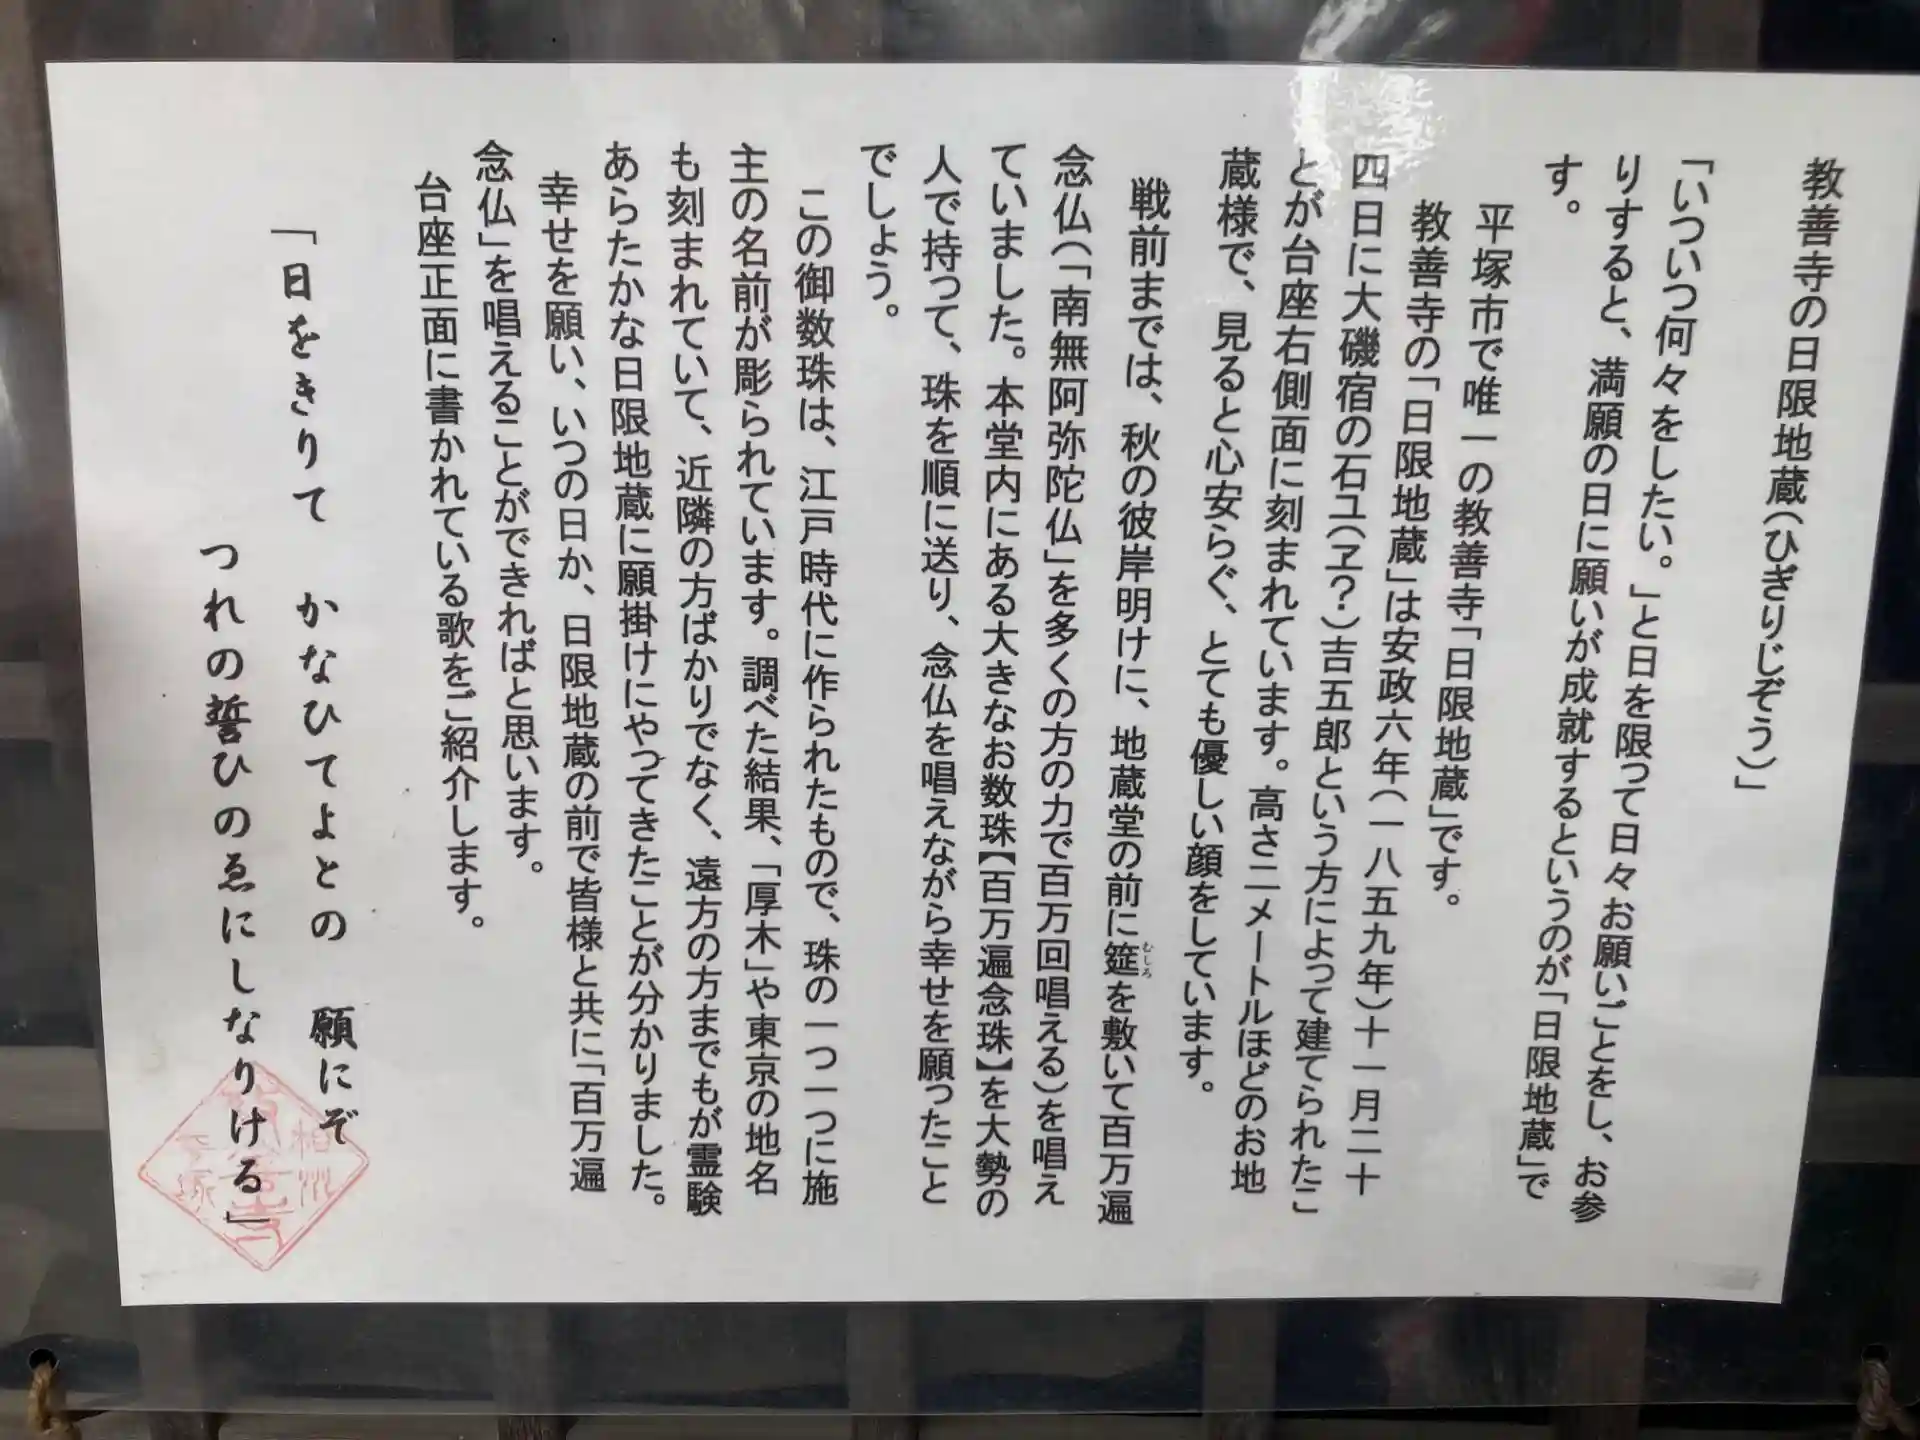 教善寺の日限地蔵（ひぎりじぞう）」
「いついつ何々をしたい。」と日を限って日々お願いごとをし、お参
りすると、満願の日に願いが成就するというのが「日限地蔵」で
す。
平塚市で唯一の教善寺「日限地蔵」です。
教善寺の「日限地蔵」は安政六年（一八五九年）十一月二十
四日に大磯宿の石ユ（ヱ？）吉五郎という方によって建てられたこ
とが台座右側面に刻まれています。高さ二メートルほどのお地
蔵様で、見ると心安らぐ、とても優しい顔をしています。
戦前までは、秋の彼岸明けに、地蔵堂の前に筵（むしろ）を敷いて百万遍
念仏（「南無阿弥陀仏」を多くの方の力で百万回唱える）を唱え
ていました。本堂内にある大きなお数珠【百万遍念珠】を大勢の
人で持って、珠を順に送り、念仏を唱えながら幸せを願ったこと
でしょう。
この御数珠は、江戸時代に作られたもので、珠の一つ一つに施
主の名前が彫られています。調べた結果、「厚木」や東京の地名
も刻まれていて、近隣の方ばかりでなく、遠方の方までもが霊験
あらたかな日限地蔵に願掛けにやってきたことが分かりました。
幸せを願い、いつの日か、日限地蔵の前で皆様と共に「百万遍
念仏」を唱えることができればと思います。
台座正面に書かれている歌をご紹介します。
「日をきりて　かなひてよとの　願にぞ
つれの誓ひのゑにしなりける」
相州
平塚